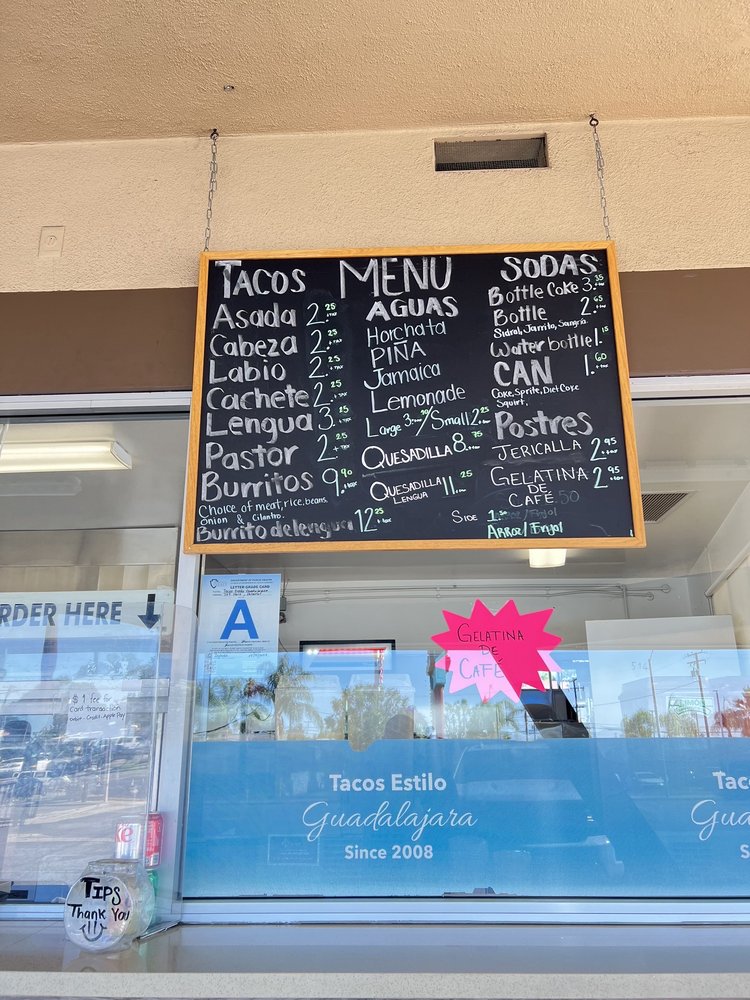 TACOS
Asada 2.25 + tax
Cabeza 2.25 + tax
Labio 2.25 + tax
Cachete 2.25 + tax
Lengua 3.25 + tax
Pastor 2.25 + tax
Burritos 9.90 + tax
Choice of meat, rice, beans,
Onion & Cilantro.
Burrito de lengua 12.25 + tax
MENU
AGUAS
Horchata
PIÑA
Jamaica
Lemonade
Large 3.90/Small 2.25
QUESADILLA 8.75
QUESADILLA
LENGUA 11.25
SIDE
ARROZ/FRIJOL
SODAS
Bottle Coke 3.35
Bottle 2.65
Sidral, Jarrito, Sangria
Water bottle 1.15
CAN 1.60
Coke, Sprite, Diet Coke
Squirt.
Postres
JERICALLA 2.95 + tax
GELATINA 2.95 + tax
DE
CAFÉ
RDER HERE
LETTER GRADE CARD
A
GELATINA
DE
CAFÉ
$1 fee for
Card transaction
Debit - Credit - Apple Pay
Tacos Estilo
Guadalajara
Since 2008
Tac
Gua
S
TIPS
Thank You